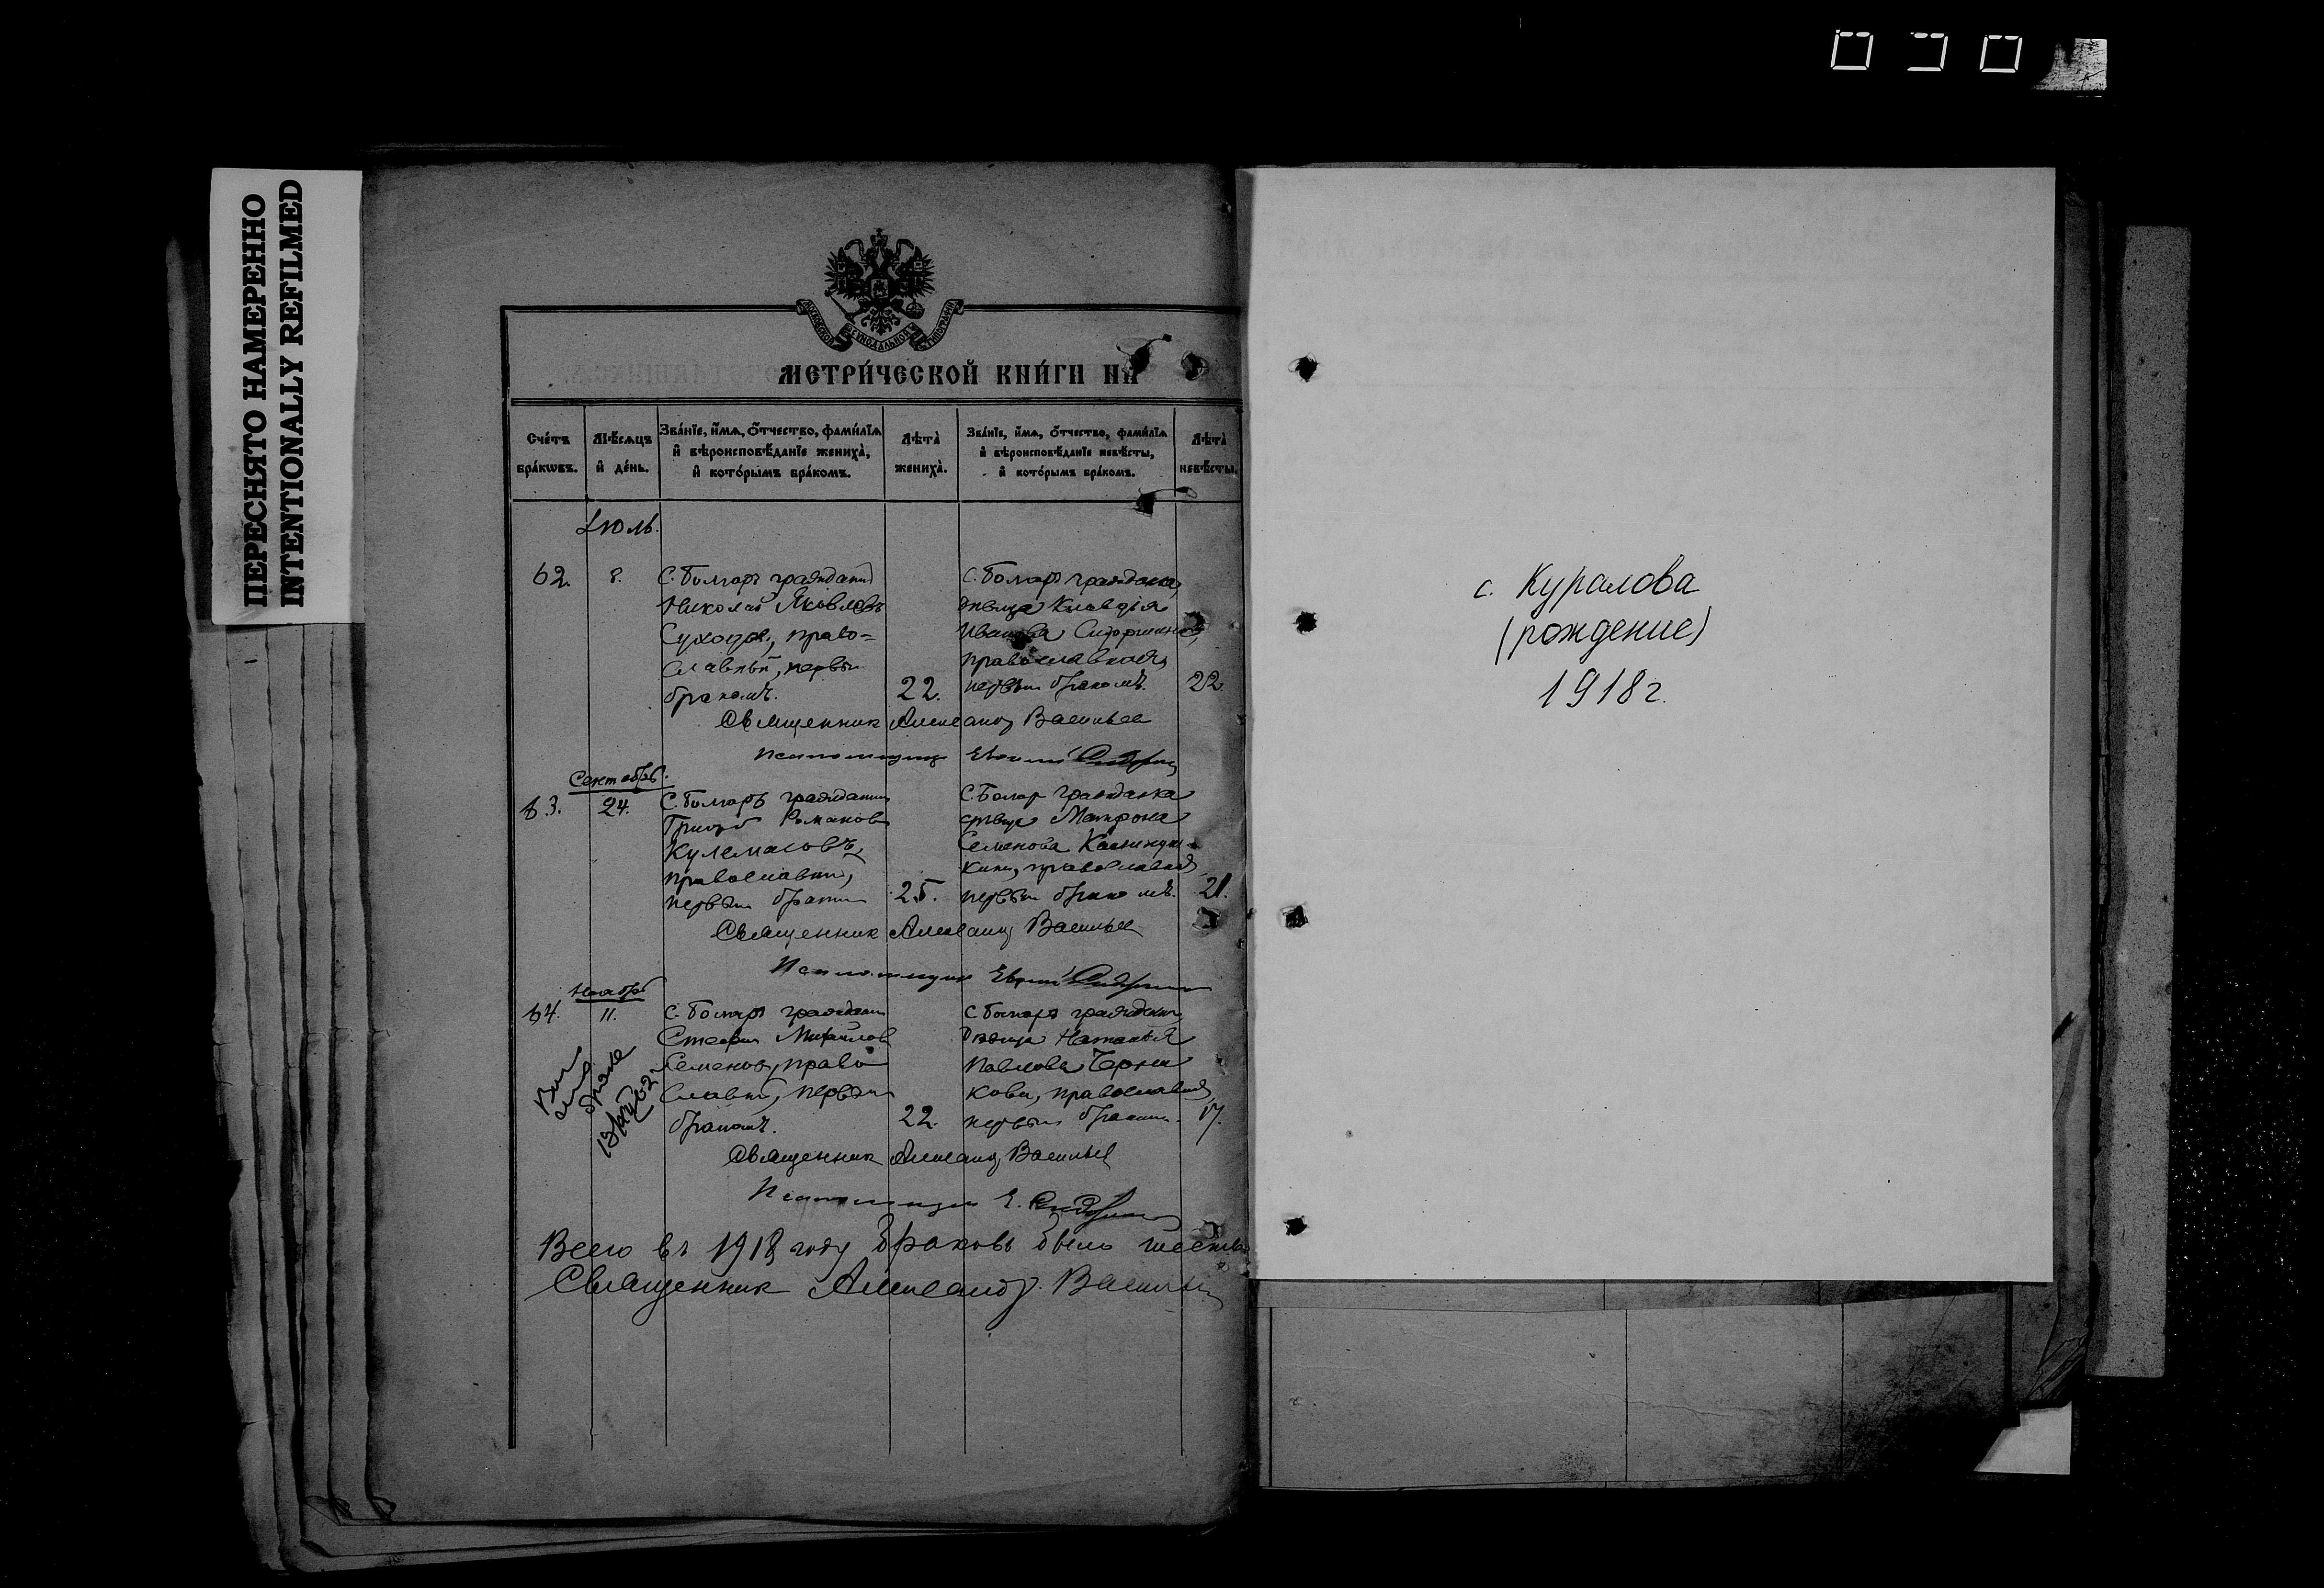 ПЕРЕСНЯТО НАМЕРЕННО
INTENTIONALLY REFILMED
МЕТРИ́ЧЕСКОЙ КНИ́ГИ НА
Сче́тъ бра́кωвъ.
Мѣ́сѧцъ и҆ де́нь.
Зва́нїе, и҆́мѧ, ѻ҆́тчество, фами́лїѧ и҆ вѣроисповѣ́данїе жениха̀, и҆ кото́рымъ бра́комъ.
Лѣта̀ жениха̀.
Зва́нїе, и҆́мѧ, ѻ҆́тчество, фами́лїѧ и҆ вѣроисповѣ́данїе невѣ́сты, и҆ кото́рымъ бра́комъ.
Лѣта̀ невѣ́сты.
Іюль.
62.
8.
С. Болгаръ гражданинъ
Николай Яковлевъ
право=
славный, первым
бракомъ.
22.
С. Болгаръ гражданка,
дѣвица Клавдія
Иванова
православная,
первым бракомъ.
22.
Священник Александр Васильев
Псаломщик Евгений
Сентябрь.
63.
24.
С. Болгаръ гражданин
Григорий Романов
Кулемасовъ,
православный,
первым браком
25.
С. Болгар гражданка
девица Матрона
Семенова
православная
первым бракомъ.
21.
Священник Александр Васильев
Псаломщик Евгений
Ноябрь
64.
11.
С. Болгаръ гражданин
Стефан Михайлов
Семенов, право
славный, первым
бракомъ.
22.
С. Болгаръ гражданка
девица Наталья
Павлова
православная,
первым браком.
17.
браке
Священник Александр Васильев
Псаломщик Е.
Всего въ 1918 году браковъ было шесть
Священник Александр. Васильев
с. Куралова
(рождение)
1918 г.